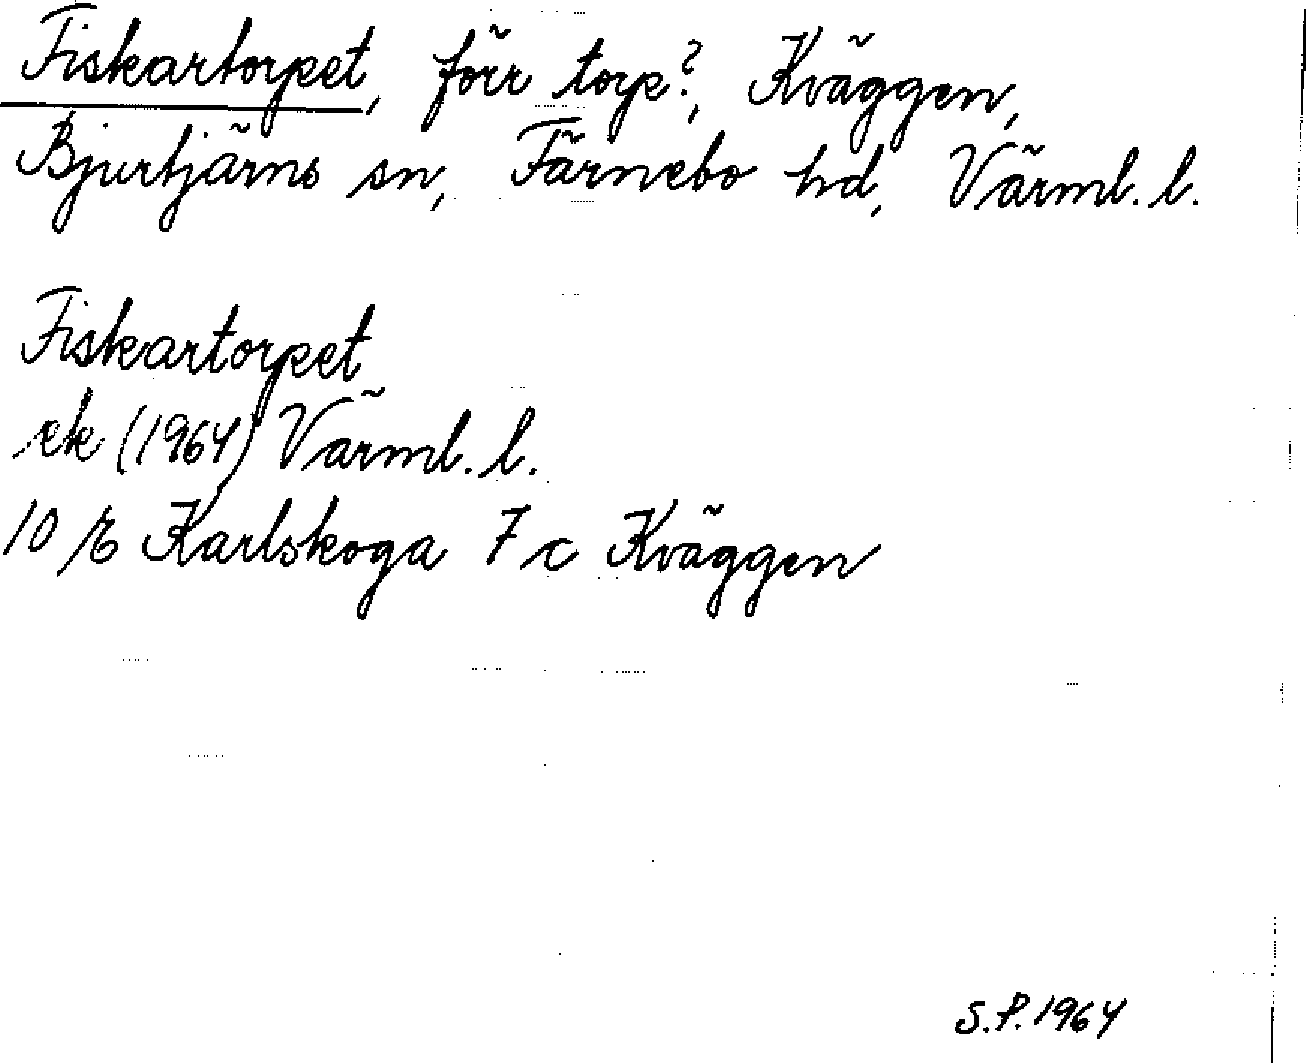 Fiskartorpet, förr torp?, Kväggen,
Bjurtjärns sn, Färnebo hd, Värml. l.
Fiskartorpet
ek (1964) Värml. l.
10 E Karlskoga 7 c Kväggen
S.P. 1964